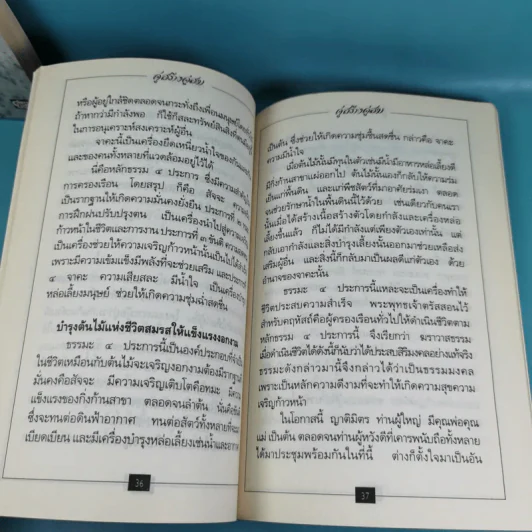 คู่สร้างคู่สม
หรือผู้อยู่ใกล้ชิดตลอดจนกระทั่งถึงเพื่อนมนุษย์
ถ้าหากว่ามีกำลังพอ ก็ใช้กำลังทรัพย์สินสิ่งที่
ในการอนุเคราะห์สงเคราะห์ผู้อื่น
จาคะนี้เป็นเครื่องยึดเหนี่ยวน้ำใจของกัน
และของคนทั้งหลายที่แวดล้อมอยู่ไว้ได้
นี้คือหลักธรรม ๔ ประการ ซึ่งมีความสำคัญ
การครองเรือน โดยสรุป ก็คือ สัจจะ ความ
เป็นรากฐานให้เกิดความมั่นคงยั่งยืน ประการที่ ๒
การฝึกฝนปรับปรุงตน เป็นเครื่องนำไปสู่ความ
ก้าวหน้าในชีวิตและการงาน ประการที่ ๓ ขันติ ความ
เป็นเครื่องช่วยให้ความเจริญก้าวหน้านั้นเป็นไปได้
เพราะมีความเข้มแข็งมีพลังที่จะช่วยเสริม และประการ
๔ จาคะ ความเสียสละ มีน้ำใจ เป็นเครื่อง
หล่อเลี้ยงมนุษย์ ช่วยให้เกิดความชุ่มฉ่ำสดชื่น
บำรุงต้นไม้แห่งชีวิตสมรสให้แข็งแรงงอกงาม
ธรรมะ ๔ ประการนี้เป็นองค์ประกอบที่จำเป็น
ในชีวิตเหมือนกับต้นไม้จะเจริญงอกงามต้องมีรากฐาน
มั่นคงคือสัจจะ มีความเจริญเติบโตคือทมะ มีความ
แข็งแรงของกิ่งก้านสาขา ตลอดจนลำต้น นั่นคือขันติ
ซึ่งจะทนต่อดินฟ้าอากาศ ทนต่อสัตว์ทั้งหลายที่จะมา
เบียดเบียน และมีเครื่องบำรุงหล่อเลี้ยงเช่นน้ำและอากาศ
36
คู่สร้างคู่สม
เป็นต้น ซึ่งช่วยให้เกิดความชุ่มชื้นสดชื่น กล่าวคือ จาคะ
ความมีน้ำใจ
เมื่อต้นไม้นั้นมีทุนในตัวเช่นมีน้ำมีอาหารหล่อเลี้ยงดี
มีกิ่งก้านสาขาแผ่ออกไป ต้นไม้นั้นเองก็กลับให้ความร่ม
เย็นแก่พื้นดิน และแก่พืชสัตว์ที่มาอาศัยร่มเงา ตลอด
จนช่วยรักษาน้ำในพื้นดินนี้ไว้ด้วย เช่นเดียวกับคนเรา
นั้นเมื่อได้สร้างเนื้อสร้างตัวโดยกำลังและเครื่องหล่อ
เลี้ยงขึ้นแล้ว ก็ไม่ได้มีกำลังแต่เพียงตัวเองเท่านั้น แต่
กลับเอากำลังและสิ่งบำรุงเลี้ยงนั้นออกมาช่วยเหลือส่ง
เสริมผู้อื่น และสิ่งนี้ก็กลับมาเป็นผลดีแก่ตัวเอง ด้วย
อำนาจของจาคะนั้น
ธรรมะ ๔ ประการนี้แหละจะเป็นเครื่องทำให้
ชีวิตประสบความสำเร็จ พระพุทธเจ้าตรัสสอนไว้
สำหรับคฤหัสถ์คือผู้ครองเรือนทั่วไปให้ดำเนินชีวิตตาม
หลักธรรม ๔ ประการนี้ จึงเรียกว่า ฆราวาสธรรม
เมื่อดำเนินชีวิตได้ดังนี้ก็นับว่าได้ประสบสิริมงคลอย่างแท้จริง
ธรรมะดังกล่าวมานี้จึงกล่าวได้ว่าเป็นธรรมมงคล
เพราะเป็นหลักความดีงามที่จะทำให้เกิดความสุขความ
เจริญก้าวหน้า
ในโอกาสนี้ ญาติมิตร ท่านผู้ใหญ่ มีคุณพ่อคุณ
แม่ เป็นต้น ตลอดจนท่านผู้หวังดีที่เคารพนับถือทั้งหลาย
ได้มาประชุมพร้อมกันในที่นี้ ต่างก็ตั้งใจมาเป็นอัน
37